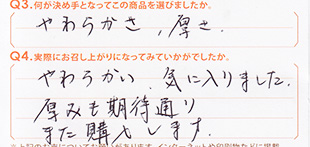 Q3.何が決め手となってこの商品を選びましたか。
やわらかさ,厚さ.
Q4.実際にお召し上がりになってみていかがでしたか。
やわらかい、気に入りました.
厚みも期待通り
また購入します.